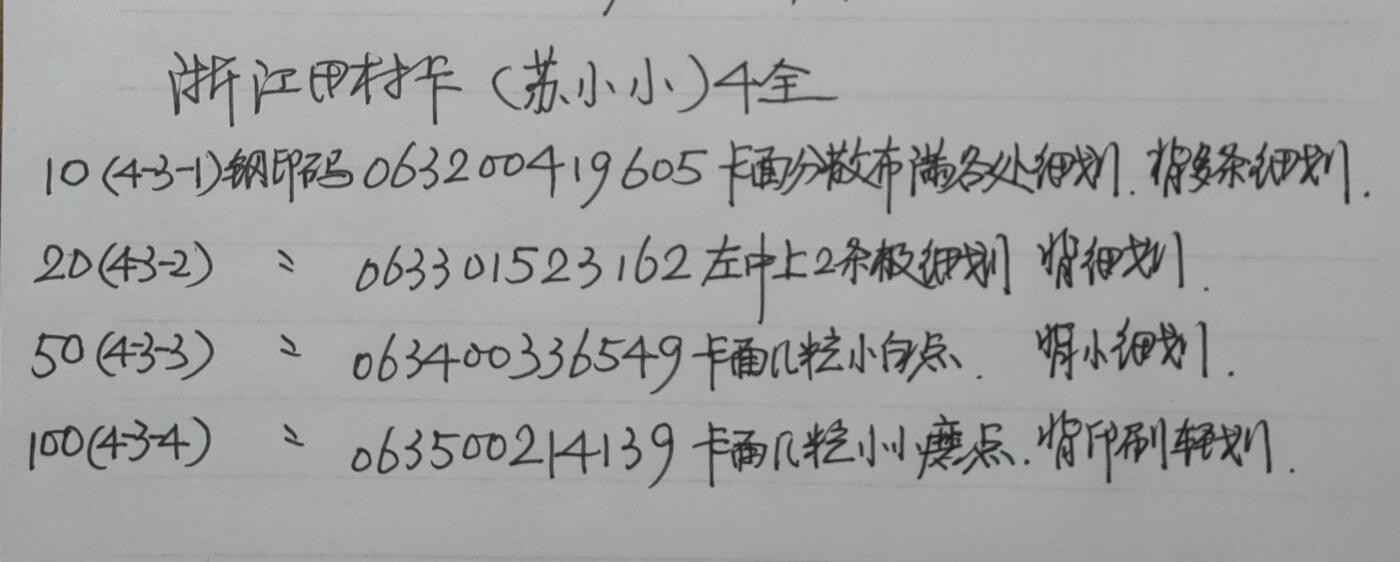 浙江田村卡（苏小小）4全
10（4-3-1）钢印码063200419605卡面分散布满各处细划.背多条细划.
20（4-3-2） 〃 063301523162左中上2条极细划 背细划.
50（4-3-3） 〃 063400336549卡面几粒小白点. 背小细划.
100（4-3-4） 〃 063500214139卡面几粒小小磨点.背印刷轻划.